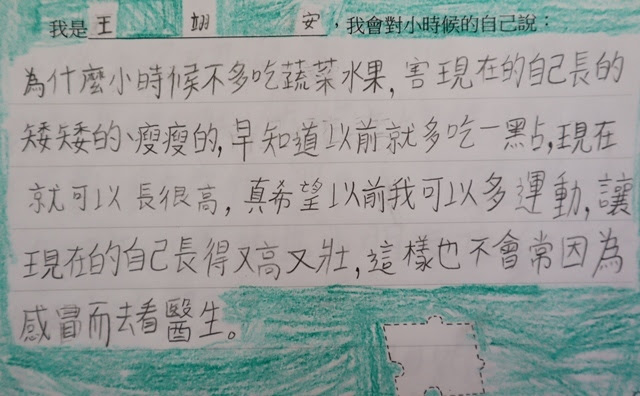 我是王翊安，我會對小時候的自己說：
為什麼小時候不多吃蔬菜水果,害現在的自己長的
矮矮的、瘦瘦的,早知道以前就多吃一點,現在
就可以長很高,真希望以前我可以多運動,讓
現在的自己長得又高又壯,這樣也不會常因為
感冒而去看醫生。